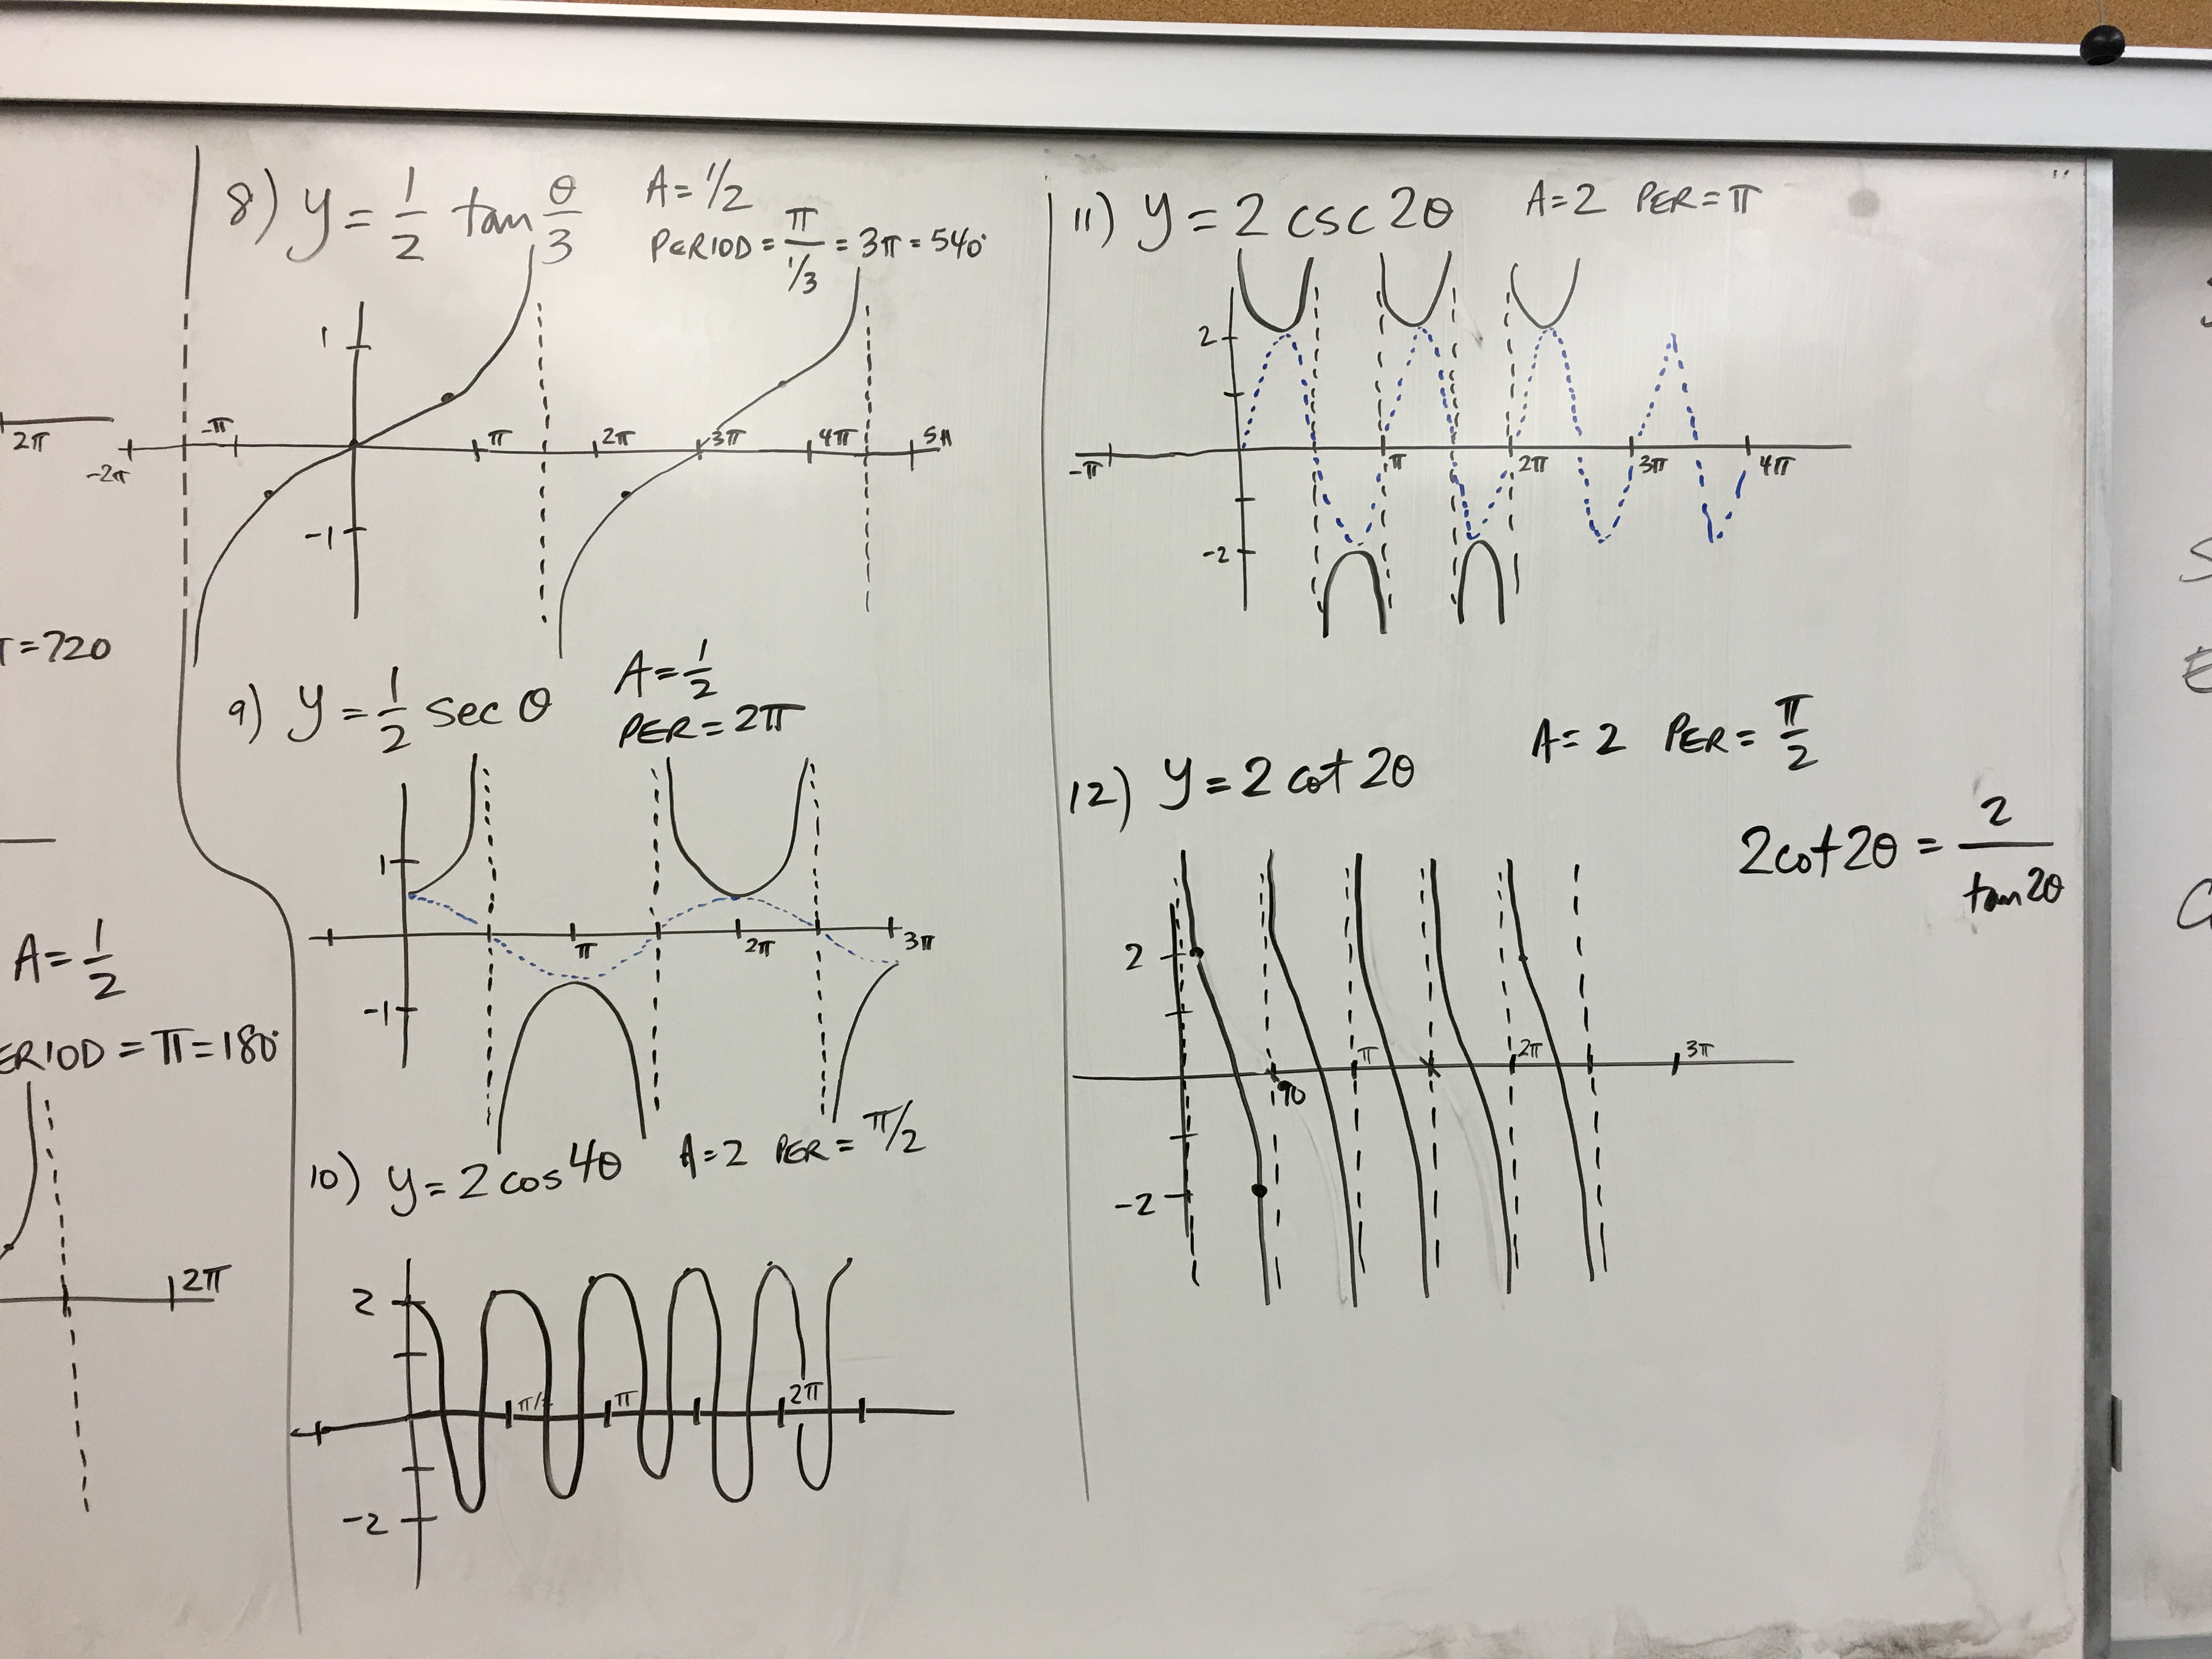 2π
T=720
A=1/2
ERIOD=π=180°
2π
8) y=1/2 tan θ/3
A=1/2
PERIOD=π/(1/3)=3π=540°
1
-2π
-π
π
2π
3π
4π
5π
-1
9) y=1/2 sec θ
A=1/2
PER=2π
1
π
2π
3π
-1
10) y=2cos4θ A=2 PER=π/2
2
π/2
π
2π
-2
11) y=2 csc 2θ A=2 PER=π
2
-π
π
2π
3π
4π
-2
12) y=2 cot 2θ
A=2 PER=π/2
2cot2θ=2/tan2θ
2
90
π
2π
3π
-2